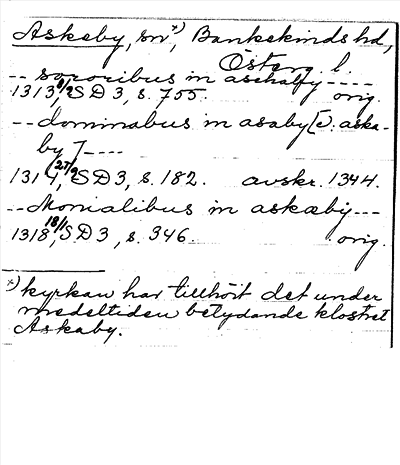 Askeby, sn *), Bankekinds hd,
Österg. l.
-- sororibus in aschalfy ----
1313 6/2 SD 3, s. 755. orig.
-- dominabus in asaby [ɔ: aska-
by] ----
1314 (27/2), SD 3, s. 182. avskr. 1344.
-- Monialibus in askæby ---
1318 18/1, SD 3, s. 346. orig.
*) kyrkan har tillhört det under
medeltiden betydande klostret
Askaby.